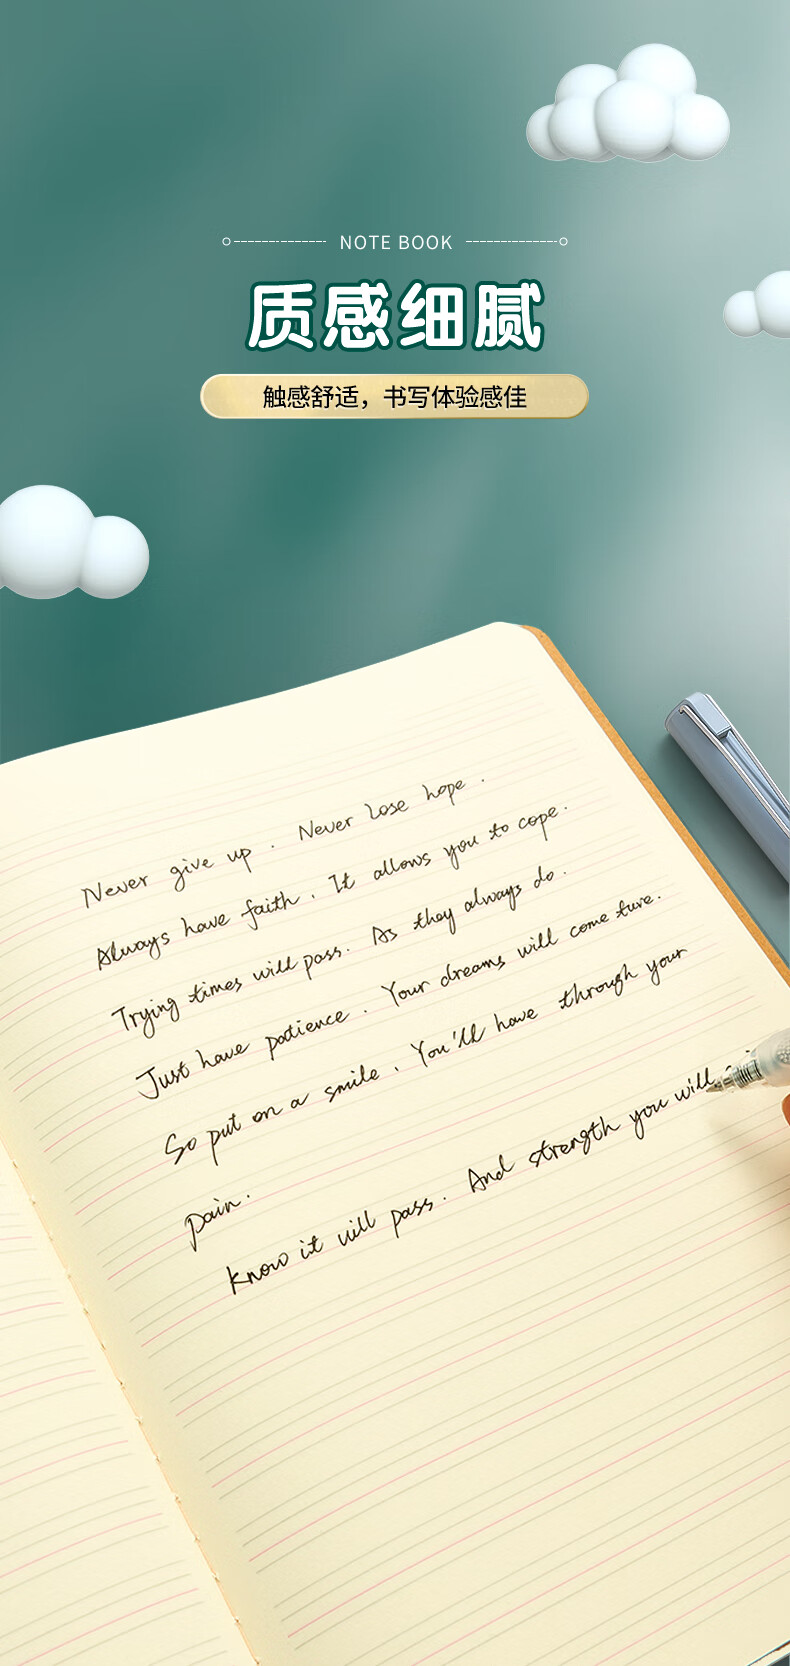 NOTE BOOK
质感细腻
触感舒适，书写体验感佳
Never give up . Never lose hope .
Always have faith . It allows you to cope .
Trying times will pass . As they always do .
Just have patience . Your dreams will come ture .
So put on a smile . You'll have through your
pain .
Know it will pass . And strength you will